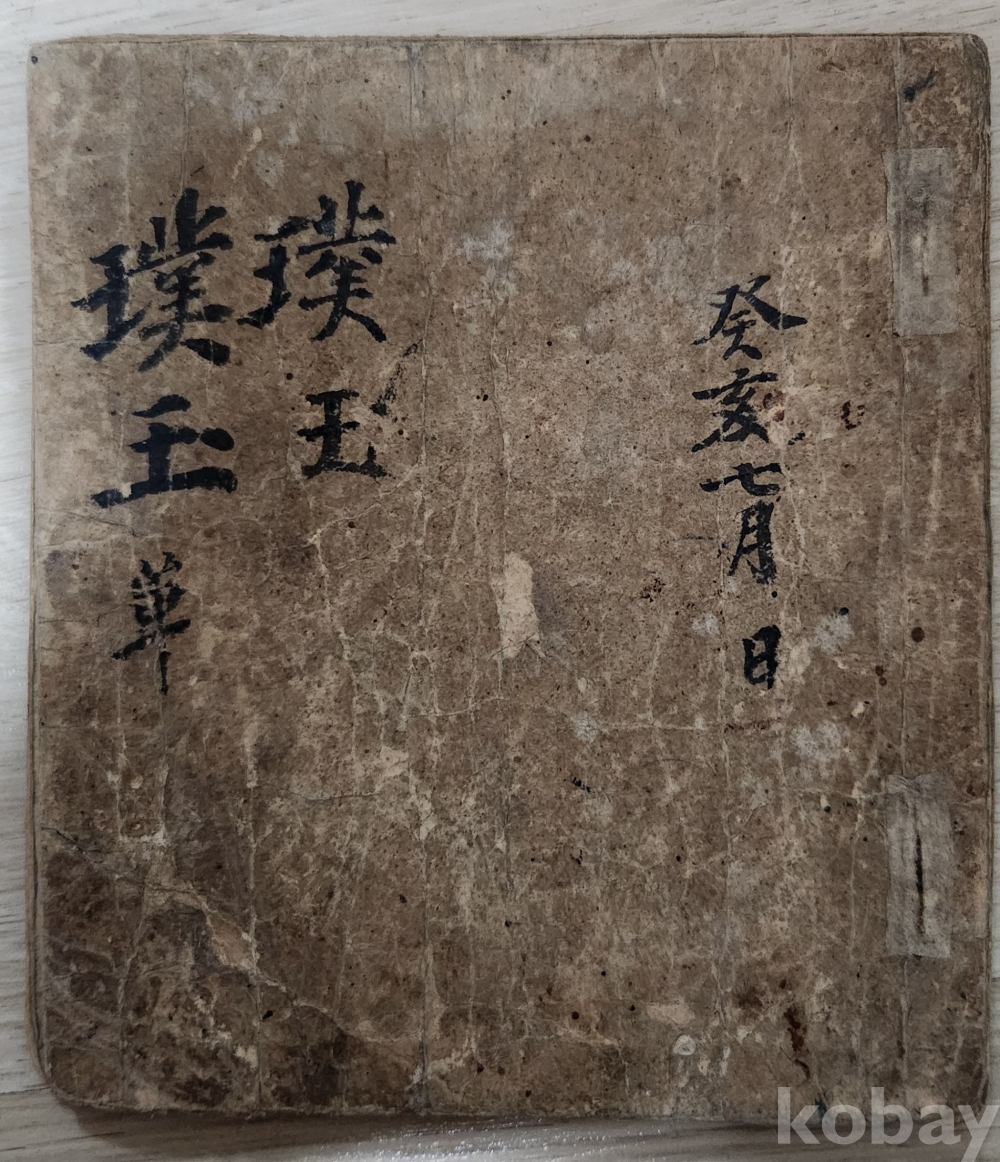 癸亥七月 日
璞玉
璞玉 單
kobay